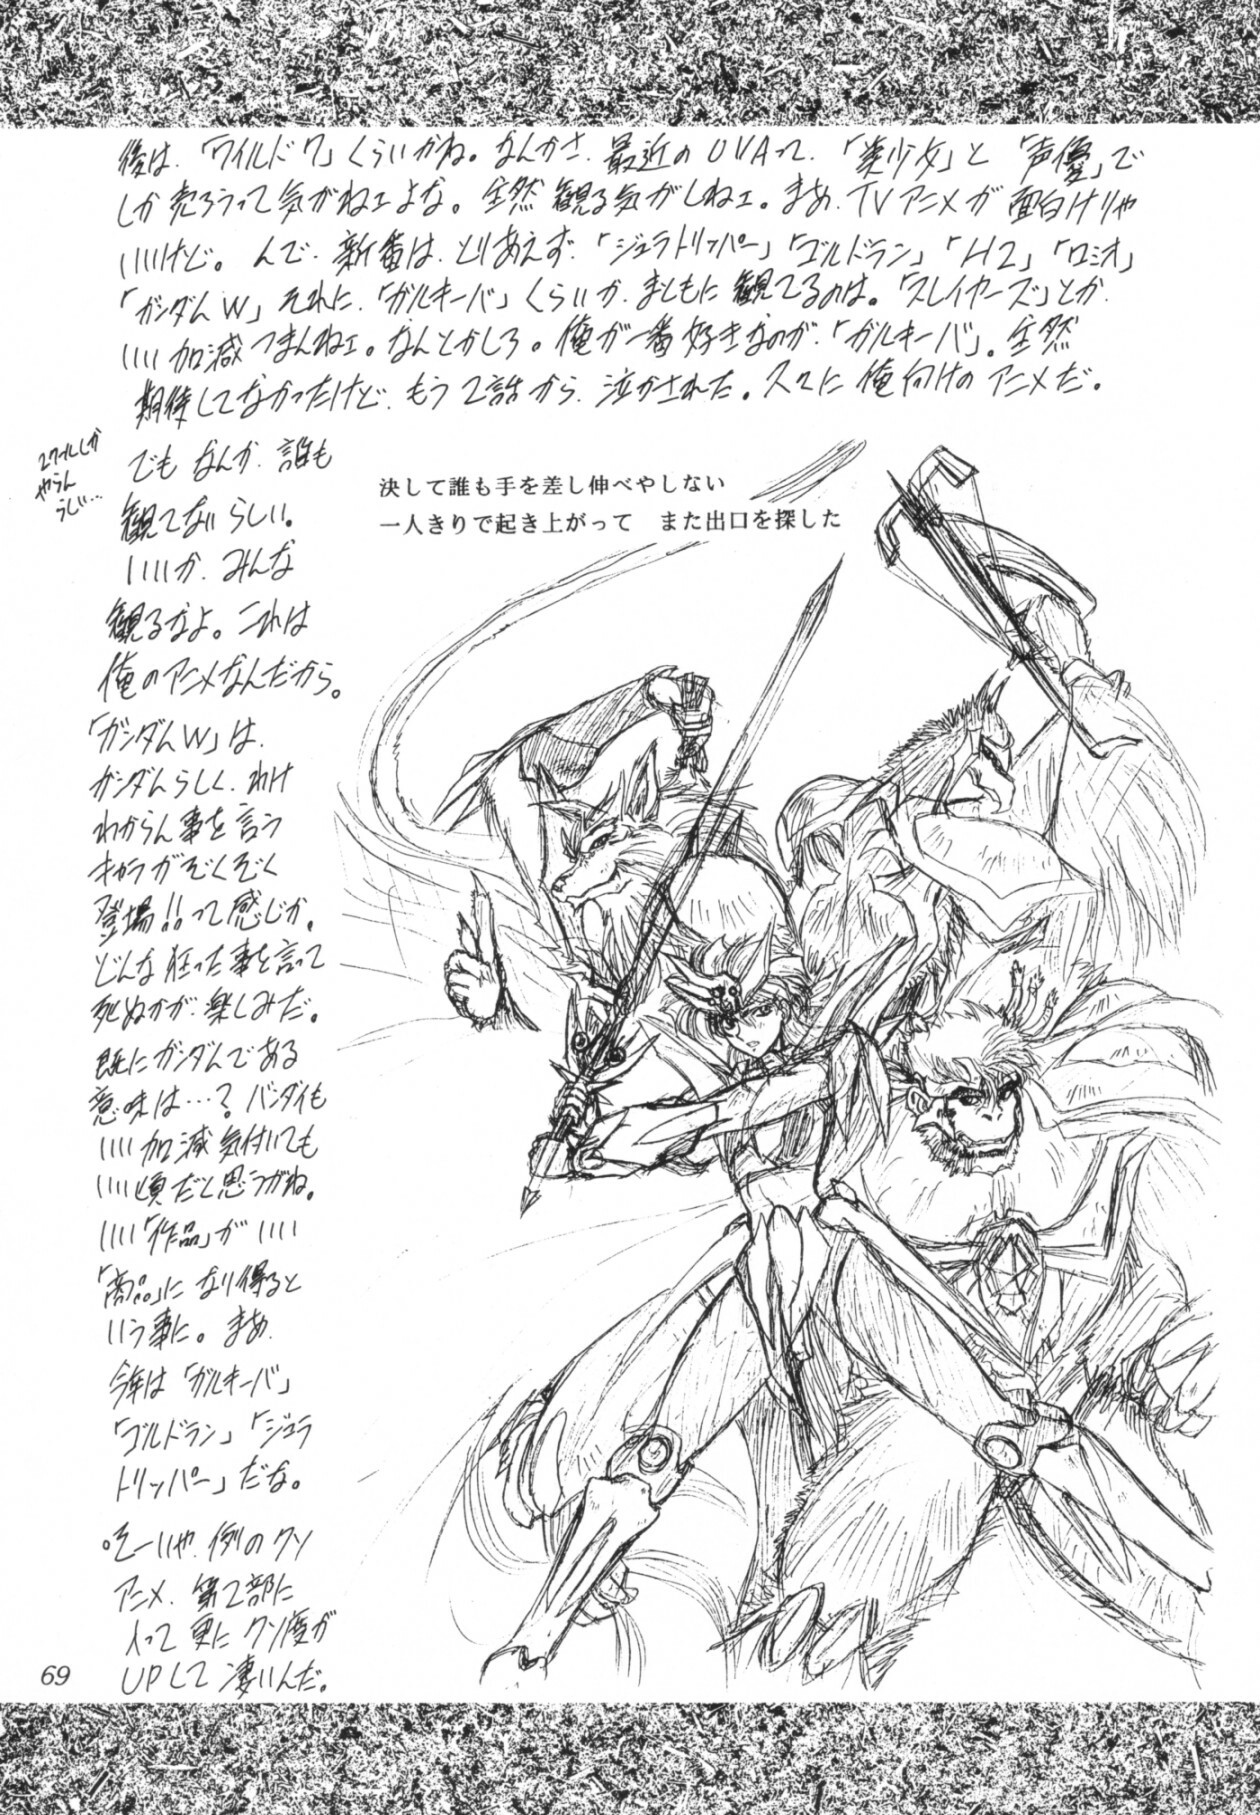 後は、「ワイルド7」くらいかね。なんかさ、最近のOVAって、「美少女」と「声優」で
しか売ろうって気がねェよな。全然観る気がしねェ。まぁ、TVアニメが面白けりゃ
いいけど。んで、新番は、とりあえず、「ジュラトリッパー」「ゴルドラン」「H2」「ロミオ」
「ガンダムW」それに、「ガルキーバ」くらいか、まともに観てるのは。「スレイヤーズ」とか、
いい加減つまんねェ。なんとかしろ。俺が一番好きなのが、「ガルキーバ」。全然
期待してなかったけど、もう2話から、泣かされた。久々に俺向けのアニメだ。
でもなんか、誰も
観てないらしい。
いいか、みんな
観るなよ。これは
俺のアニメなんだから。
「ガンダムW」は、
ガンダムらしく、わけ
わからん事を言う
キャラがぞくぞく
登場!!って感じか。
どんな狂った事を言って
死ぬかが、楽しみだ。
既にガンダムである
意味は…?バンダイも
いい加減気付いても
いい頃だと思うがね。
いい「作品」がいい
「商品」になり得ると
いう事に。まぁ、
今年は「ガルキーバ」
「ゴルドラン」「ジュラ
トリッパー」だな。
・そーいや、例のクソ
アニメ、第2部に
入って更にクソ度が
UPして凄いんだ。
2クールしか
やらん
決して誰も手を差し伸べやしない
一人きりで起き上がって　また出口を探した
69